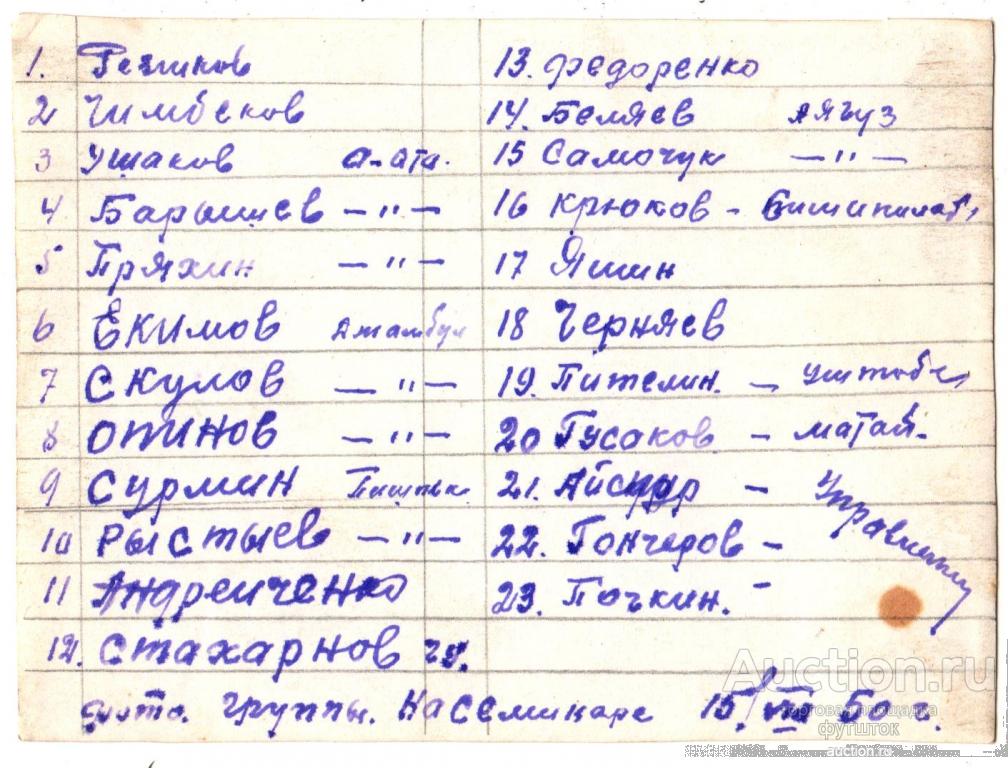 1. Резников
2 Чимбеков
3 Ушаков А-Ата.
4 Барышев —"—
5 Пряхин —"—
6 Екимов Джамбул
7 Скулов —"—
8 Опинов —"—
9 Сурмин
10 Рыстыев —"—
11 Андрейченко
12. Стахарнов Чу.
13. Федоренко
14. Беляев Аягуз
15 Самочук —"—
16 Крюков -
17 Яшин
18 Черняев
19. Пителин. — Уштобе
20 Гусаков — Матай.
21. —
22. Гончаров —
23. Почкин. —
Управлению
фото. группы. На семинаре 15/VIII 50 г.
Auction.ru
торговая площадка
ФУТШТОК
auction.ru